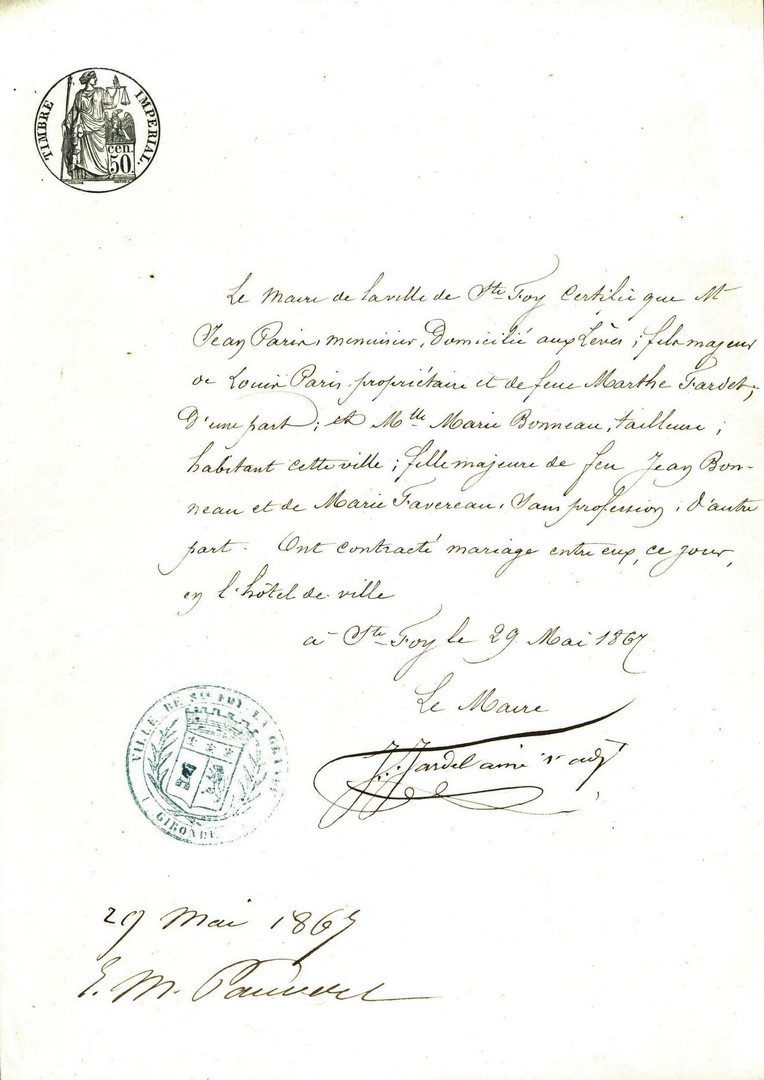 TIMBRE IMPERIAL.
cen.
50.
Le Maire de la ville de Ste Foy Certifie que Mr
Jean Paris, menuisier, Domicilié aux Lèves ; fils majeur
de Louis Paris propriétaire et de feue Marthe Fardet,
D'une part ; et Mlle Marie Bonneau, tailleuse ;
habitant cette ville ; fille majeure de feu Jean Bon-
neau et de Marie Favereau, Sans profession ; d'autre
part. Ont contracté mariage entre eux, ce jour,
en l'hôtel de ville
à Ste Foy le 29 Mai 1867
Le Maire
VILLE DE Ste FOY LA GRANDE
GIRONDE
J. Jardel ainé 1r adjt
29 Mai 1867
E. M.